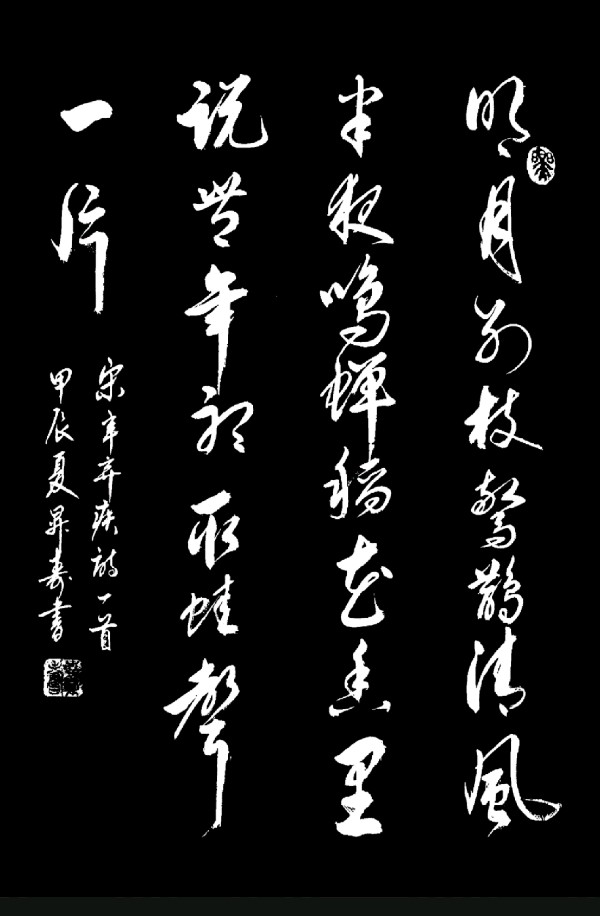 明月别枝驚鵲清風
半夜鸣蝉稻花香里
说豐年聽取蛙聲
一片
宋辛弃疾詩一首
甲辰夏昇寿書